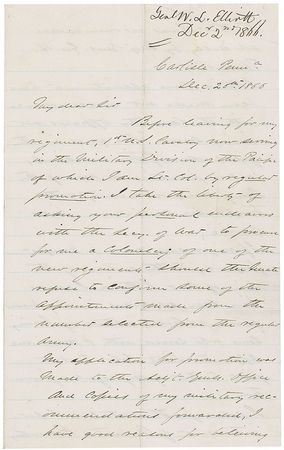 Genl W. L. Elliott
Decr 2nd 1866.
Carlisle Penna
Dec. 2nd 1866
My dear Sir
Before leaving for my
regiment, 1st U.S. Cavalry now serving
in the Military Division of the Pacific
of which I am Lt. Col. by regular
promotion. I take the liberty of
asking your personal endeavors
with the Secy. of War to procure
for me a Colonelcy of one of the
new regiments should the Senate
refuse to confirm some of the
appointments made from the
number selected from the regular
Army.
My application for promotion was
made to the Adjt. Genls. Office
and copies of my military rec-
ommendations forwarded, I
have good reasons for believing